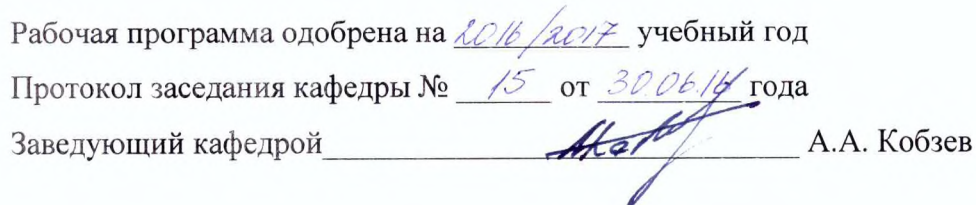 Рабочая программа одобрена на 2016/2017 учебный год
Протокол заседания кафедры № 15 от 30.06.16 года
Заведующий кафедрой А.А. Кобзев